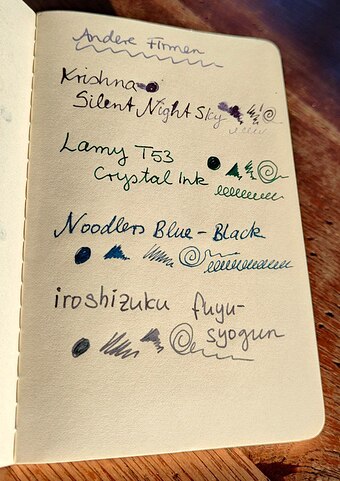 Andere Firmen
Krishna
Silent Night Sky
Lamy T53
Crystal Ink
Noodlers Blue-Black
iroshizuku fuyu-
syogun